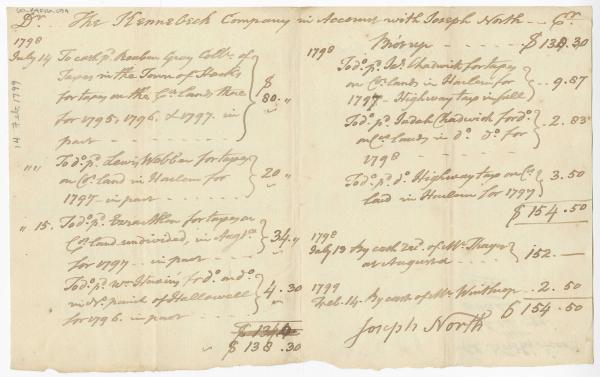 Dr. The Kennebeck Company in Account with Joseph North — Cr.
1798
July 14 To cash pd. Reuben Gray Collr. of
Taxes in the Town of Hacks
for taxes on the Co. lands there
for 1795, 1796, & 1797. in
part
$ 80. "
" " To do. pd. Lewis Webber for taxes
on Co. land in Harlem for
1797 - in part
20 "
" 15. To do. pd. Ezra for taxes on
Co. land undivided, in Augta
for 1797 - in part
34. "
To do. pd. Wm. for do. on do.
in No. parish of Hallowell
for 1796. in part
4.30
$ 138.30
1798
Mov'd up $ 138.30
To do. pd. Jas. Chadwick for taxes
on Co. lands in Harlem for
1797 - Highway tax in full
9.87
To do. pd. Judah Chadwick for do.
on Co. lands in do. do. for
1798
2.83
To do. pd. do. Highway tax on Co.
land in Harlem for 1797
3.50
$ 154.50
1798
July 13 By cash recd. of Mr. Thayer
at Augusta
152. —
1799
Feb. 14. By cash of Mr. Winthrop - 2.50
$ 154.50
Joseph North
14 Feb 1799